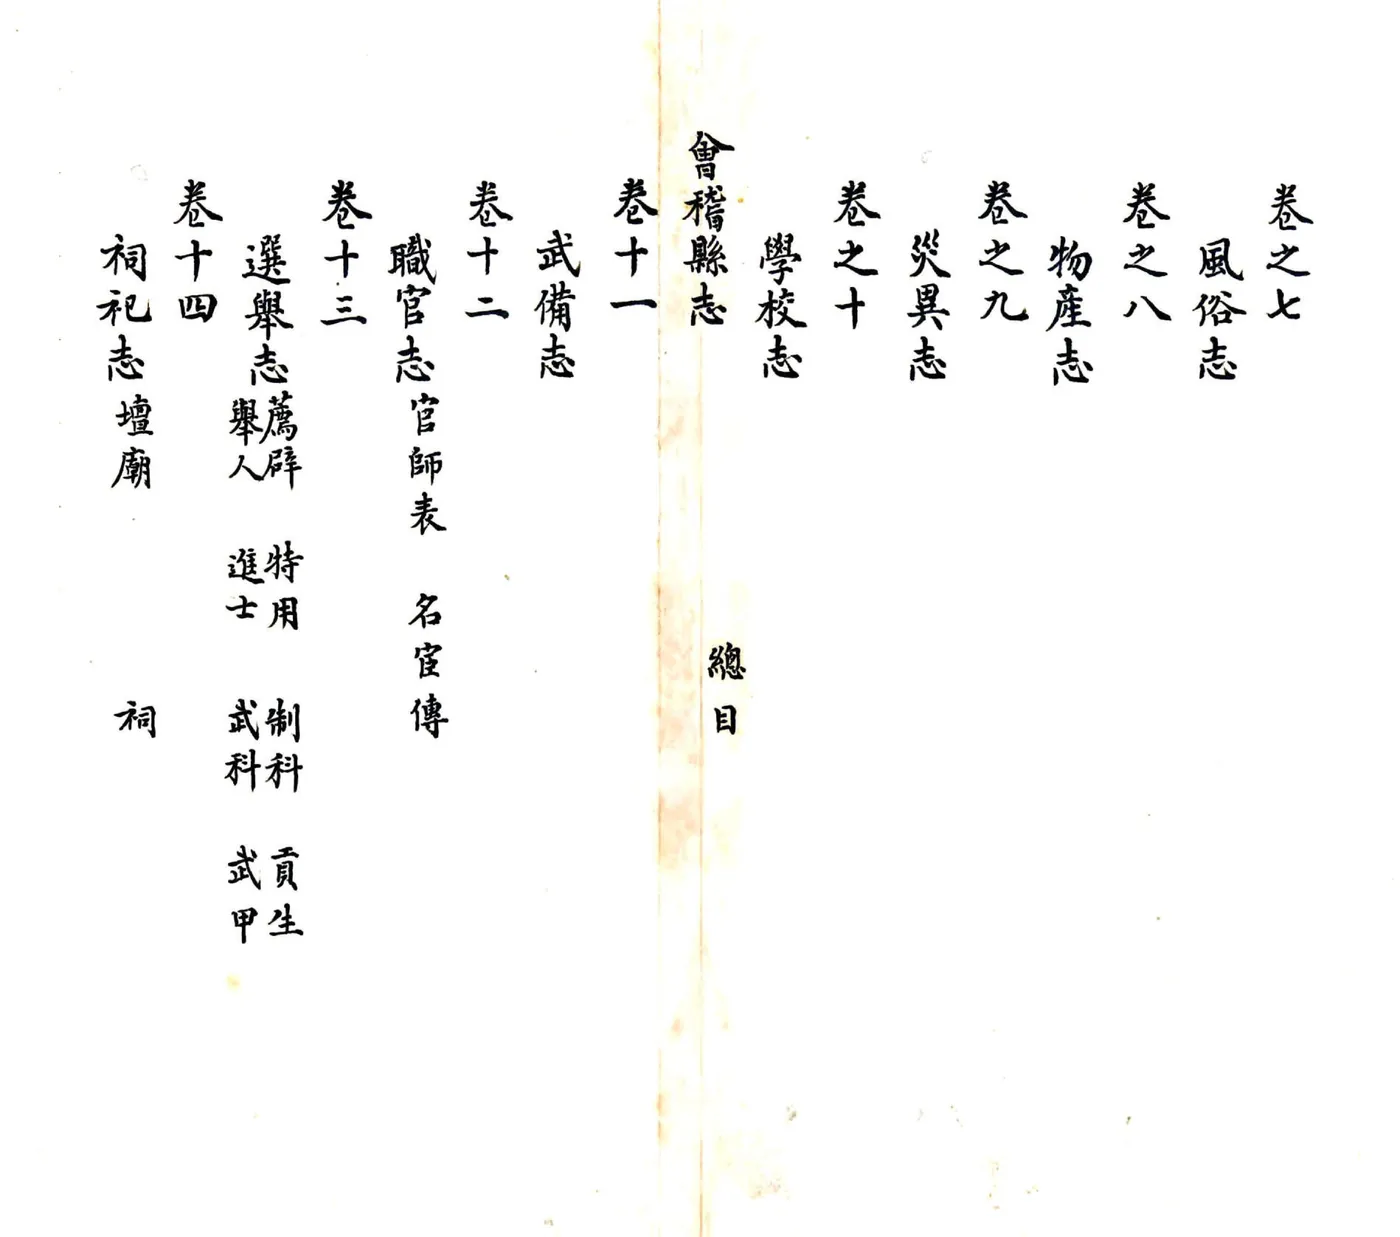 卷之七
風俗志
卷之八
物產志
卷之九
災異志
卷之十
學校志
會稽縣志 總目
卷十一
武備志
卷十二
職官志 官師表 名宦傳
卷十三
選舉志 薦辟 特用 制科 貢生
舉人 進士 武科 武甲
卷十四
祠祀志 壇廟 祠